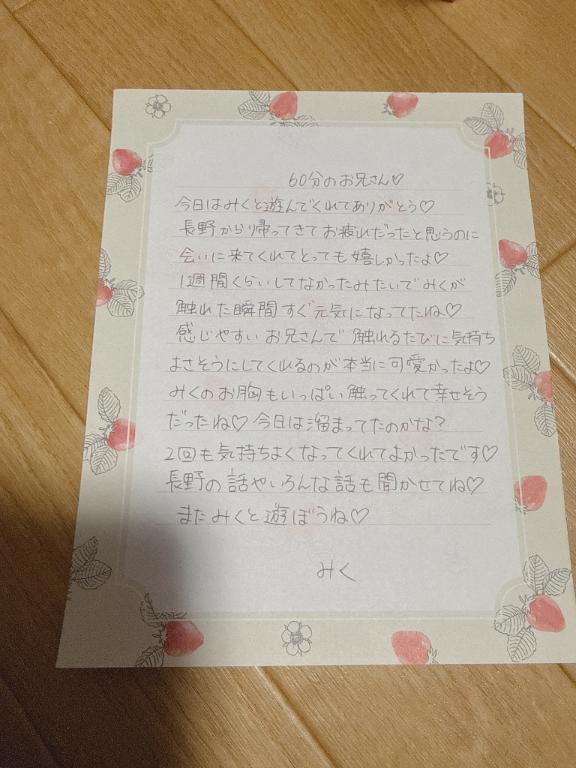 60分のお兄さん♡
今日はみくと遊んでくれてありがとう♡
長野から帰ってきてお疲れだったと思うのに
会いに来てくれてとっても嬉しかったよ♡
1週間くらいしてなかったみたいでみくが
触れた瞬間すぐ元気になってたね♡
感じやすいお兄さんで触れるたびに気持ち
よさそうにしてくれるのが本当に可愛かったよ♡
みくのお胸もいっぱい触ってくれて幸せそう
だったね♡今日は溜まってたのかな?
2回も気持ちよくなってくれてよかったです♡
長野の話やいろんな話も聞かせてね♡
またみくと遊ぼうね♡
みく